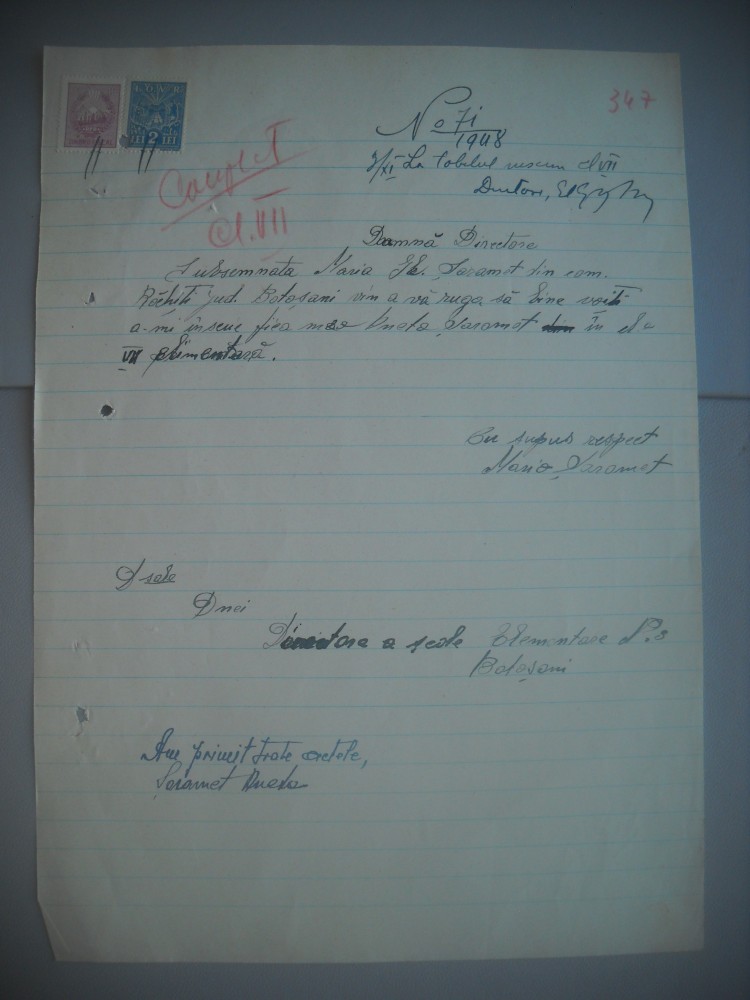 347
No 71
1948
Complect
Cl. VII
9/XI La tabelul cl VII
Doamnă Directore
Subsemnata Maria Gh. Saramet din com.
Răchiti jud. Botoșani vin a vă ruga să bine voiti
a-mi înscrie fica mea Aneta Saramet din în cl-a
VII elimentară.
Cu supus respect
Maria Saramet
Dsale
Dnei
Directore a scole Elementare N. 3
Botoșani
Am primit toate actele,
Șaramet Aneta
2
LEI